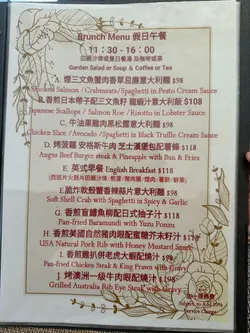 Brunch Menu 假日午餐
11:30 - 16:00
田園沙律或是日餐湯 及咖啡或茶
Garden Salad or Soup & Coffee or Tea
煙三文魚蟹肉香草忌廉意大利麵 $98
Smoked Salmon / Crabmeats / Spaghetti in Pesto Cream Sauce
B. 香煎日本帶子配三文魚籽 龍蝦汁意大利飯 $108
Japanese Scallops / Salmon Roe / Risotto in Lobster Sauce
C. 牛油果雞肉黑松露意大利麵 $98
Chicken Slice / Avocado / Spaghetti in Black Truffle Cream Sauce
D. 烤菠蘿 安格斯牛肉 芝士漢堡包配薯條 $118
Angus Beef Burger steak & Pineapple with Bun & Fries
E. 英式早餐 English Breakfast $118
E. 脆炸軟殼蟹香辣蒜片意大利麵 $98
Soft Shell Crab with Spaghetti in Spicy & Garlic
G. 香煎盲鰽魚柳配日式柚子汁 $118
Pan-fried Baramundi with Yuzu Ponzu
H. 香煎美國自然豬肉眼配蜜糖芥末籽汁 $118
USA Natural Pork Rib with Honey Mustard Sauce
I. 香煎雞扒併老虎大蝦配燒汁 $98
Pan-fried Chicken Steak & King Prawn with Gravy
J. 烤澳洲一級牛肉眼配燒汁 $198
Grilled Australia Rib Eye Steak with Gravy
Service Charge